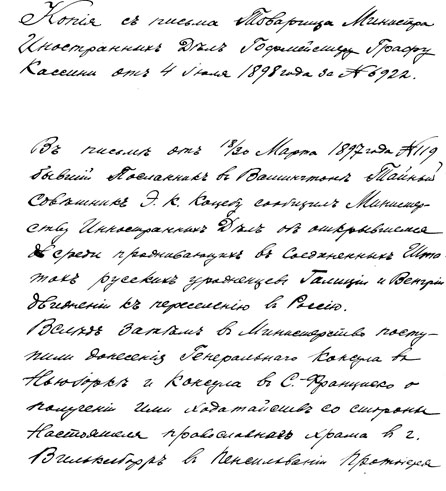 Копія съ письма Товарища Министра
Иностранныхъ Дѣлъ Гофмейстеру Графу
Кассини отъ 4 Іюля 1898 года за № 6922.
Въ письмѣ отъ 18/30 Марта 1897 года № 119
бывшій Посланникъ въ Вашингтонѣ Тайный
Совѣтникъ Э. К. Коцебу сообщилъ Министер-
ству Иностранныхъ Дѣлъ объ открывшемся
среди проживающихъ въ Соединенныхъ Шта-
тахъ русскихъ уроженцевъ Галиціи и Венгріи
движеніи къ переселенію въ Россію.
Вслѣдъ затѣмъ въ Министерство посту-
пили донесенія Генеральнаго Консула въ
Нью-Іоркѣ и Консула въ С.-Франциско о
полученіи ими ходатайствъ со стороны
Настоятеля православнаго храма въ г.
Вилькесборъ въ Пенсильваніи Протоіерея